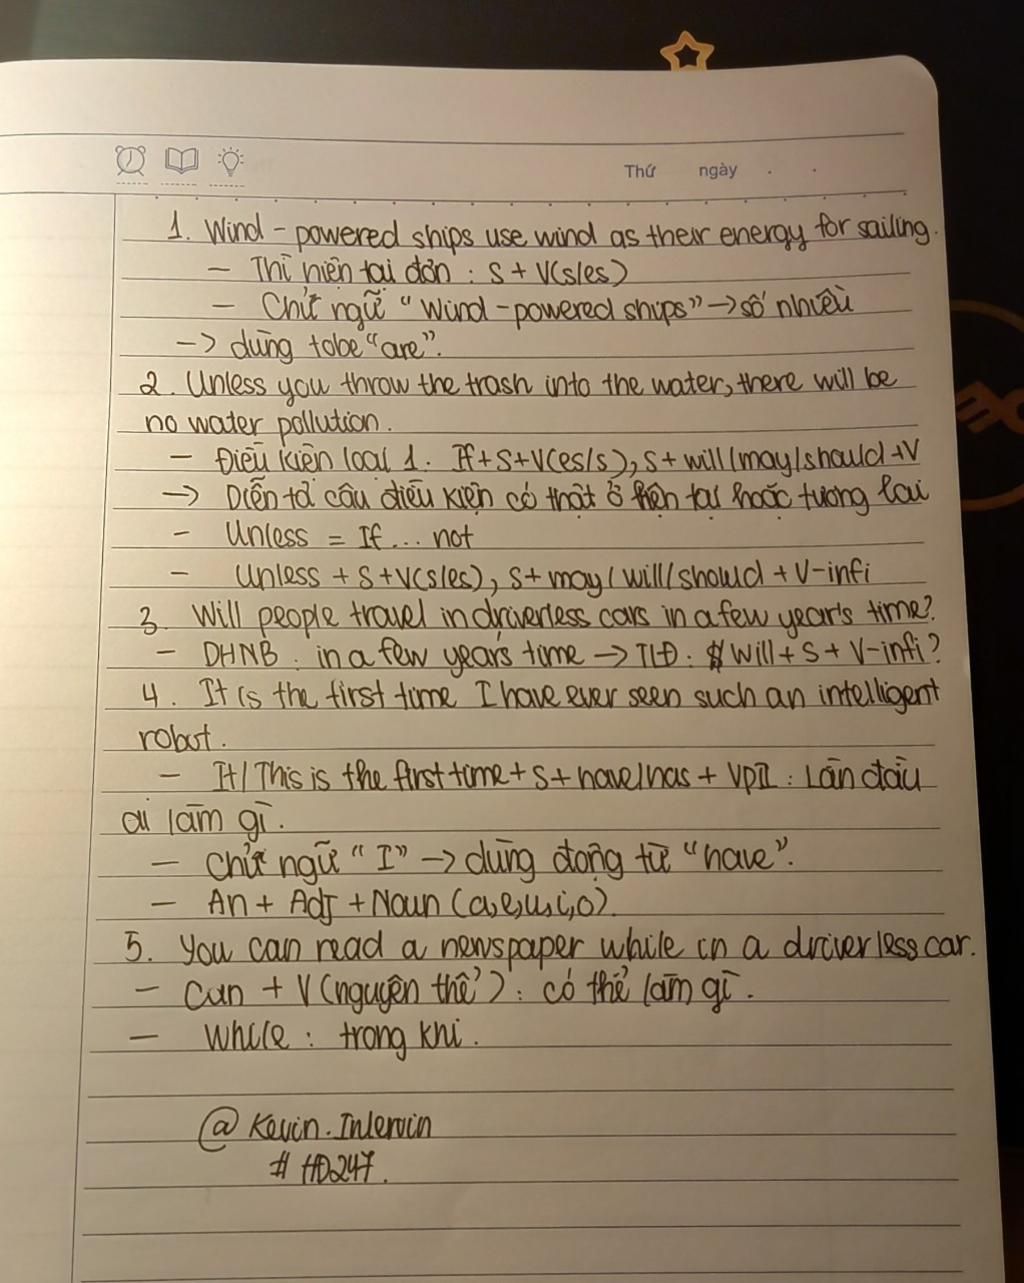 Thứ ngày . .
1. Wind - powered ships use wind as their energy for sailing.
- Thì hiện tại đơn : S + V(s/es)
- Chử ngữ "Wind-powered ships" -> số nhiều
-> dùng tobe "are".
2. Unless you throw the trash into the water, there will be
no water pollution.
- Điều kiện loại 1. If + S + V(es/s), S + will/may/should + V
-> Diễn tả câu điều kiện có thật ở hiện tại hoặc tương lai
- Unless = If... not
- Unless + S + V(s/es), S + may/will/should + V-infi
3. Will people travel in driverless cars in a few year's time?
- DHNB : in a few years time -> TLĐ : Will + S + V-infi?
4. It is the first time I have ever seen such an intelligent
robot.
- It/This is the first time + S + have/has + VpII : Lần đầu
ai làm gì.
- Chử ngữ "I" -> dùng động từ "have".
- An + Adj + Noun (a,e,u,i,o).
5. You can read a newspaper while in a driverless car.
- Can + V (nguyên thể) : có thể làm gì.
- While : trong khi.
@ Kevin.Inlervin
# HD247.